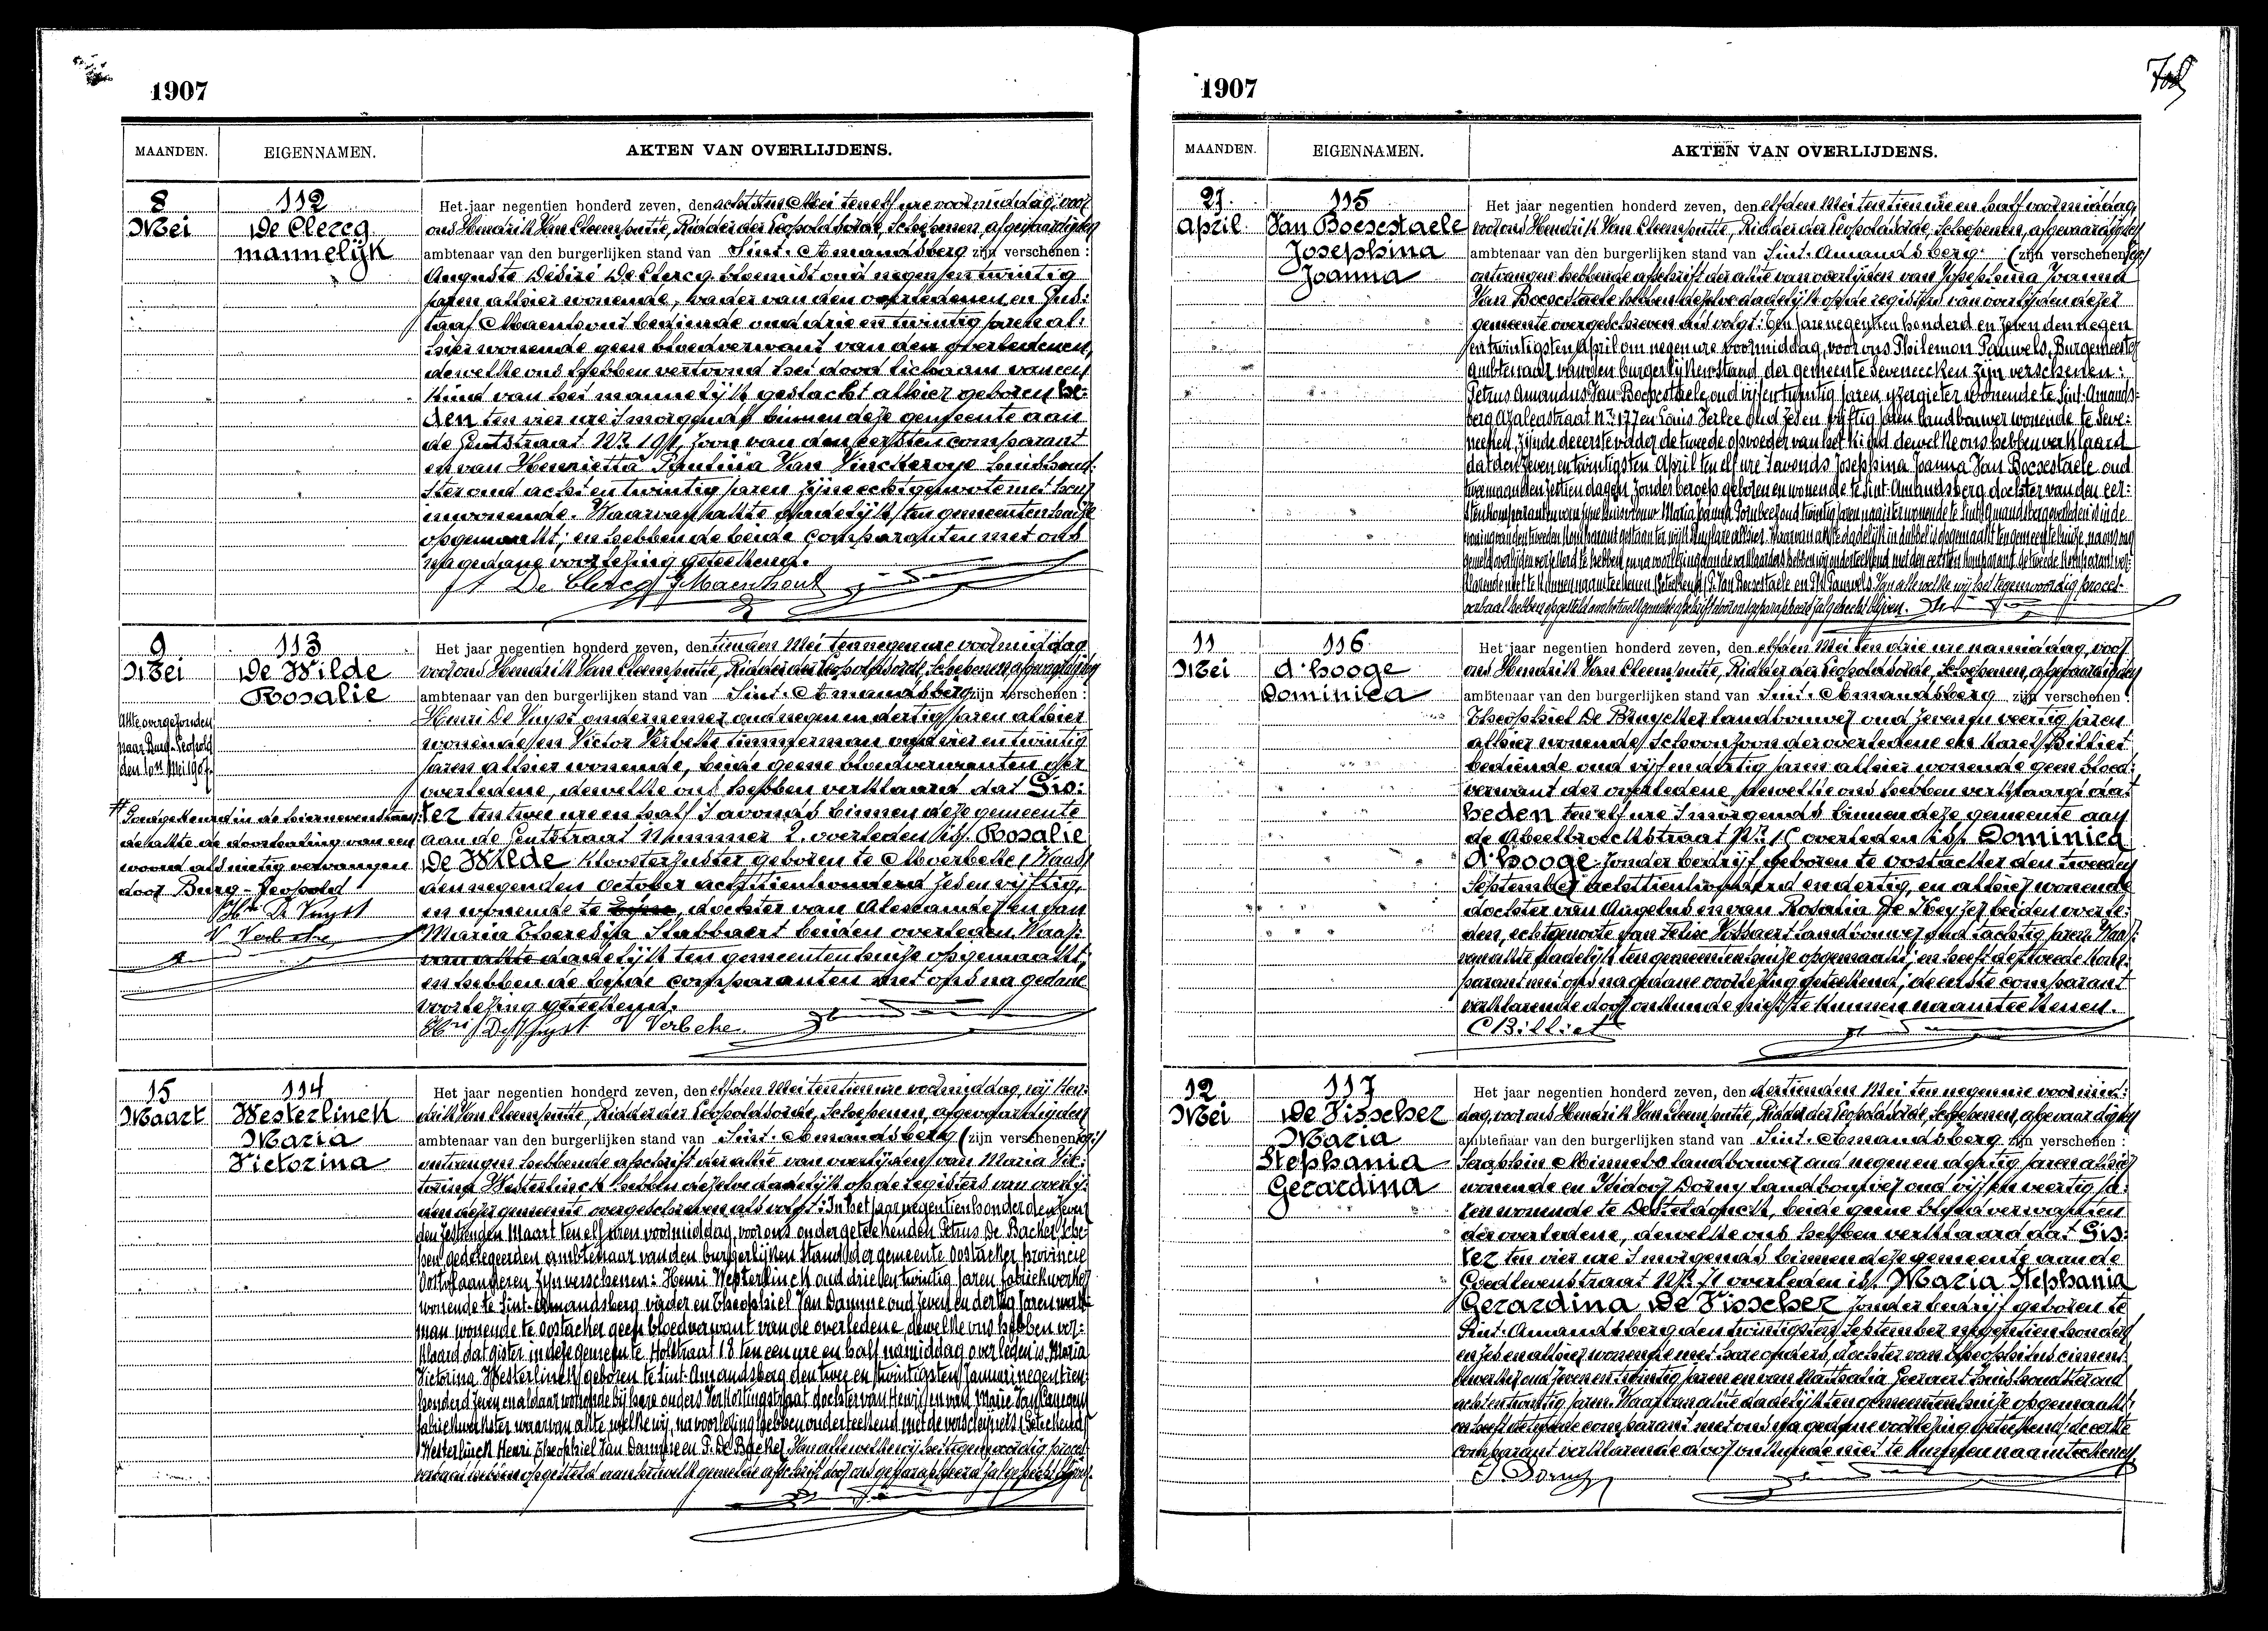 1907
MAANDEN. EIGENNAMEN. AKTEN VAN OVERLIJDENS.
8 Mei
112
De Clercq
mannelijk
Het jaar negentien honderd zeven, den achtsten Mei ten elf ure voormiddag, voor
ons Hendrik Van Cleemputte, Ridder der Leopoldsorde, Schepenen, afgevaardigden
ambtenaar van den burgerlijken stand van Sint-Amandsberg zijn verschenen:
Auguste Désiré De Clercq bloemist oud negen en twintig
jaren alhier wonende, vader van den overledenen en Gus:
taaf Maenhout bediende oud drie en twintig jaren al:
hier wonende geen bloedverwant van den overledenen,
dewelke ons hebben vertoond het dood lichaam van een
kind van het mannelijk geslacht alhier geboren he:
den ten vier ure 's morgends binnen deze gemeente aan
de Gentstraat Nr. 191, zoon van den eersten comparant
en van Henrietta Paulina Van Vinckeroye huishoud:
ster oud acht en twintig jaren zijne echtgenoote met hem
inwonende. Waarvan akte dadelijk ten gemeentenhuize
opgemaakt; en hebben de beide comparanten met ons
na gedane voorlezing geteekend.
De Clercq G Maenhout
9 Mei
113
De Wilde
Rosalie
Akte overgezonden
naar Burg-Leopold
den 10n Mei 1907.
# Goedgekeurd in de hiernevenstaan:
de akte de doorhaling van een
woord als nietig vervangen
door Burg-Leopold
Hri De Vuyst
V Verbeke
Het jaar negentien honderd zeven, den tienden Mei ten negen ure voormiddag
voor ons Hendrik Van Cleemputte, Ridder der Leopoldsorde, Schepenen, afgevaardigden
ambtenaar van den burgerlijken stand van Sint-Amandsberg zijn verschenen:
Henri De Vuyst ondernemer oud negen en dertig jaren alhier
wonende en Victor Verbeke timmerman oud vier en twintig
jaren alhier wonende, beide geene bloedverwanten der
overledene, dewelke ons hebben verklaard dat Gis:
ter ten twee ure en half 's avonds binnen deze gemeente
aan de Gentstraat Nummer 2. overleden is Rosalie
De Wilde Kloosterzuster geboren te Moerbeke (Waas)
den negenden October achttien honderd zes en vijftig,
en wonende te , dochter van Alexander en van
Maria Theresia Stabbaert beiden overleden. Waar:
van akte dadelijk ten gemeentenhuize opgemaakt;
en hebben de beide comparanten met ons na gedane
voorlezing geteekend.
Hri De Vuyst V Verbeke
15 Maart
114
Westerlinck
Maria
Victorina
Het jaar negentien honderd zeven, den elfden Mei ten tien ure voormiddag, wij Hen:
drik Van Cleemputte, Ridder der Leopoldsorde, Schepenen, afgevaardigden
ambtenaar van den burgerlijken stand van Sint-Amandsberg (zijn verschenen
ontvangen hebbende afschrift der akte van overlijden van Maria Vic:
torina Westerlinck hebben dezelve dadelijk op de registers van overlij:
den dezer gemeente overgeschreven als volgt: In het jaar negentien honderd en zeven
den zestienden Maart ten elf uren voormiddag, voor ons ondergeteekenden Petrus De Backer Sche:
pen gedelegeerden ambtenaar van den burgerlijken Stand der gemeente Oostacker, provincie
Oostvlaanderen zijn verschenen: Henri Westerlinck oud drie en twintig jaren fabriekwerker
wonende te Sint-Amandsberg vader en Theophiel Van Damme oud zeven en dertig jaren werk:
man wonende te Oostacker geen bloedverwant van de overledene, dewelke ons hebben ver:
klaard dat gister in deze gemeente Holstraat 18 ten een ure en half namiddag overleden is Maria
Victorina Westerlinck geboren te Sint-Amandsberg den twee en twintigsten Januari negentien
honderd zeven en aldaar wonende bij hare ouders dochter van Henri en van Marie Van
fabriekwerkster waarvan akte welke wij na voorlezing hebben onderteekend met de verschijners (Geteekend)
Westerlinck Henri Theophiel Van Damme en P. De Backer. Van alle welke wij het tegenwoordig proces
verbaal hebben opgesteld aan hetwelk gemelde afschrift door ons geparapheerd zal gehecht blijven.
1907
MAANDEN. EIGENNAMEN. AKTEN VAN OVERLIJDENS.
27 April
115
Van Boesestaele
Josephina
Joanna
Het jaar negentien honderd zeven, den elfden Mei ten tien ure en half voormiddag
voor ons Hendrik Van Cleemputte, Ridder der Leopoldsorde, Schepenen, afgevaardigden
ambtenaar van den burgerlijken stand van Sint-Amandsberg (zijn verschenen
ontvangen hebbende afschrift der akte van overlijden van Josephina Joanna
Van Boesestaele hebben dezelve dadelijk op de registers van overlijden dezer
gemeente overgeschreven als volgt: Ten jare negentien honderd en zeven den negen
en twintigsten April om negen ure voormiddag, voor ons Philemon Pauwels, Burgemeester
Ambtenaar van den burgerlijken stand der gemeente Seveneecken zijn verschenen:
Petrus Amandus Van Boesestaele, oud vijf en twintig jaren, ijzergieter wonende te Sint-Amands-
berg Azaleastraat Nr. 177 en Louis Verlee oud zes en vijftig jaren landbouwer wonende te Seve:
neecken, zijnde de eerste vader de tweede opvoeder van het kind dewelke ons hebben verklaard
dat den zeven en twintigsten April ten elf ure 's avonds Josephina Joanna Van Boesestaele oud
twee maanden zestien dagen, zonder beroep geboren en wonende te Sint-Amandsberg dochter van den eer:
verbaal hebben opgesteld aan hetwelk gemelde afschrift door ons geparapheerd zal gehecht blijven.
11 Mei
116
D'hooge
Dominica
Het jaar negentien honderd zeven, den elfden Mei ten drie ure namiddag, voor
ons Hendrik Van Cleemputte, Ridder der Leopoldsorde, Schepenen, afgevaardigden
ambtenaar van den burgerlijken stand van Sint-Amandsberg zijn verschenen:
Theophiel De Bruycker landbouwer oud zeven en veertig jaren
alhier wonende, schoonzoon der overledene en Karel Billiet
bediende oud vijf en dertig jaren alhier wonende geen bloed:
verwant der overledene dewelke ons hebben verklaard dat
heden ten elf ure 's morgends binnen deze gemeente aan
de Abeelbroeckstraat Nr. overleden is Dominica
D'hooge zonder bedrijf geboren te Oostacker den tweeden
September achttien honderd en dertig, en alhier wonende
dochter van Angelus en van Rosalia De Keyzer beiden overle:
den, echtgenoote van Felix landbouwer oud tachtig jaren. Waar:
van akte dadelijk ten gemeentenhuize opgemaakt; en heeft de tweede com:
parant met ons na gedane voorlezing geteekend; de eerste comparant
verklarende door onkunde niet te kunnen naamteekenen.
C Billiet
12 Mei
117
De Visscher
Maria
Stephania
Gerardina
Het jaar negentien honderd zeven, den dertienden Mei ten negen ure voormid:
dag, voor ons Hendrik Van Cleemputte, Ridder der Leopoldsorde, Schepenen, afgevaardigden
ambtenaar van den burgerlijken stand van Sint-Amandsberg zijn verschenen:
Seraphin Minnebo landbouwer oud negen en dertig jaren alhier
wonende en Isidoor Dorny landbouwer oud vijf en veertig ja:
ren wonende te Destelbergen, beide geene bloedverwanten
der overledene, dewelke ons hebben verklaard dat Gis:
ter ten vier ure 's morgends binnen deze gemeente aan de
Goedlevenstraat Nr. overleden is Maria Stephania
Gerardina De Visscher zonder bedrijf geboren te
Sint-Amandsberg den twintigsten September negentien honderd
en zes en alhier wonende met hare ouders, dochter van Theophilus ciment:
bewerker oud zeven en twintig jaren en van Nathalia Geeraert huishoudster oud
acht en twintig jaren. Waarvan akte dadelijk ten gemeentenhuize opgemaakt;
en heeft de tweede comparant met ons na gedane voorlezing geteekend; de eerste
comparant verklarende door onkunde niet te kunnen naamteekenen.
I Dorny